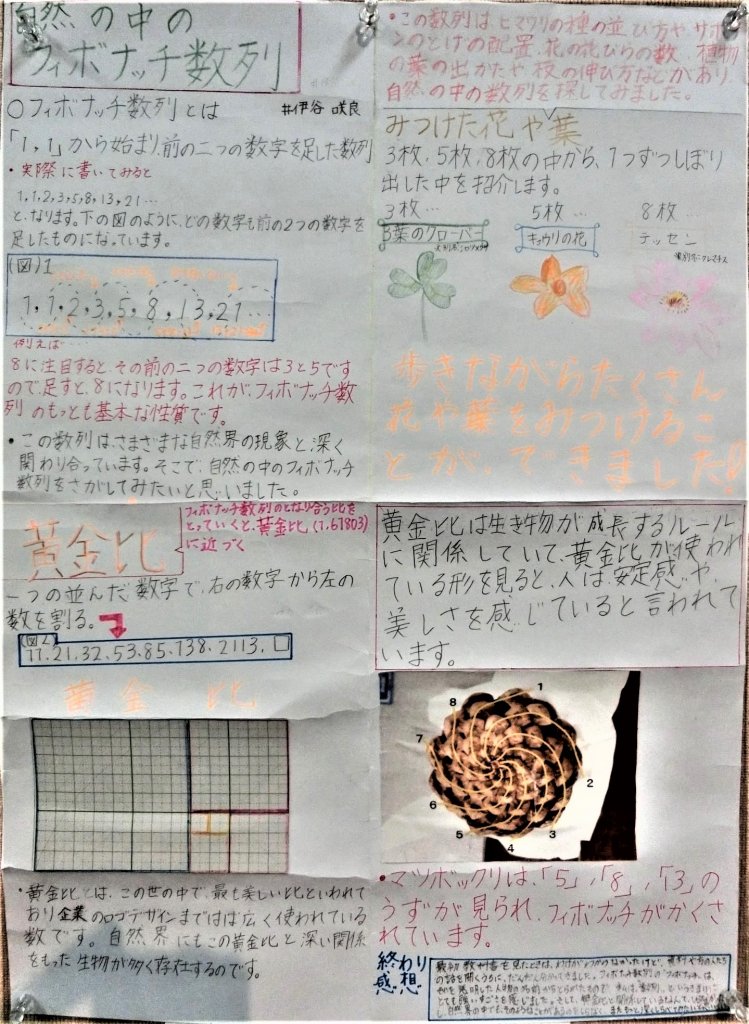 自然の中の
フィボナッチ数列
○フィボナッチ数列とは
井伊谷 咲良
「1,1」から始まり、前の二つの数字を足した数列
・実際に書いてみると
1,1,2,3,5,8,13,21…
と、なります。下の図のように、どの数字も前の2つの数字を
足したものになっています。
(図)1
1,1,2,3,5,8,13,21…
例えば…
8に注目すると、その前の二つの数字は3と5です
ので、足すと、8になります。これが、フィボナッチ数
列のもっとも基本な性質です。
・この数列は、さまざまな自然界の現象と、深く
関わり合っています。そこで、自然の中のフィボナッチ
数列をさがしてみたいと思いました。
・この数列は、ヒマワリの種の並び方や、サボテ
ンのとげの配置、花の花びらの数、植物
の葉の出かたや、枝の伸び方などがあり、
自然の中の数列を探してみました。
みつけた花や葉
3枚、5枚、8枚の中から、1つずつしぼり
出した中を紹介します。
3枚… 5枚… 8枚…
3葉のクローバー キュウリの花 テッセン
歩きながらたくさん
花や葉をみつけるこ
とが、できました!
黄金比
フィボナッチ数列のとなり合う比を
とっていくと、黄金比(1.61803)
に近づく
一つの並んだ、数字で、右の数字から左の
数を割る。
(図2)
11.21.32.53.85.138.2113.□
黄金比
・黄金比とは、この世の中で、最も美しい比といわれて
おり企業のロゴデザインまではば広く使われている
数です。自然界にもこの黄金比と深い関係
をもった生物が多く存在するのです。
黄金比は生き物が成長するルール
に関係していて、黄金比が使われ
ている形を見ると、人は、安定感や、
美しさを感じていると言われて
います。
1
2
3
4
5
6
7
8
・マツボックリは、「5」、「8」、「13」の
うずが見られ、フィボナッチがかくさ
れています。
終わり
感想